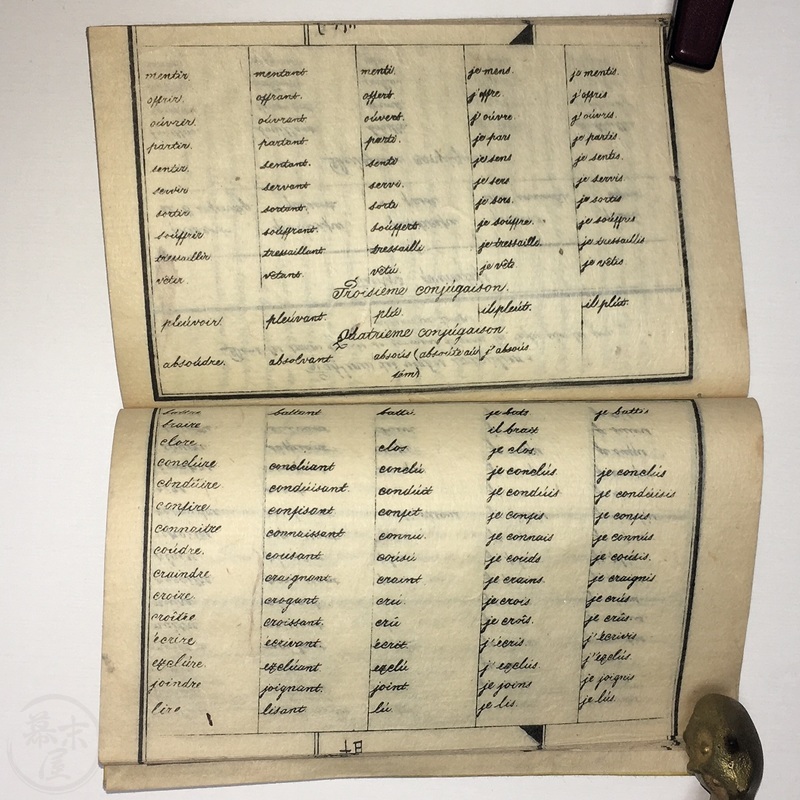 mentir mentant menti je mens. je mentis.
offrir offrant. offert j'offre. j'offris
oúvrir oúvrant oúvert j'oúvre. j'oúvris.
partir partant. parti je pars je partis.
sentir sentant. senti je sens je sentis.
servir servant servi. je sers je servis
sortir sortant. sorti je sors. je sortis
soúffrir soúffrant. soúffert je soúffre. je soúffris
tressaillir tressaillant tressailli je tressaille. je tressaillis
vêtir vêtant. vêtú je vêts je vêtis
Troisième conjúgaison.
pleúvoir. pleúvant. plú il pleút. il plút.
Quatrieme conjúgaison.
absoúdre. absolvant absoús (absoúte aú j'absoús
fém)
battant battú. je bats je battis
braire il brait
clore clos je clos
conclúre conclúant conclú je conclús je conclús
condúire condúisant condúit je condúis je condúisis
confire confisant confit je confis je confis
connaitre connaissant connu. je connais je connús
coúdre. cousant coúsú je coúds je coúsis.
craindre craignant craint je crains. je craignis
croire croyant crú. je crois je crús
croître croissant. crú je croîs. je crûs
écrire écrivant. écrit. j'écris j'écrivis
exclúre exclúant exclú j'exclús. j'exclús.
joindre joignant. joint je joins je joignis
lire lisant lú je lis. je lús.
幕末屋